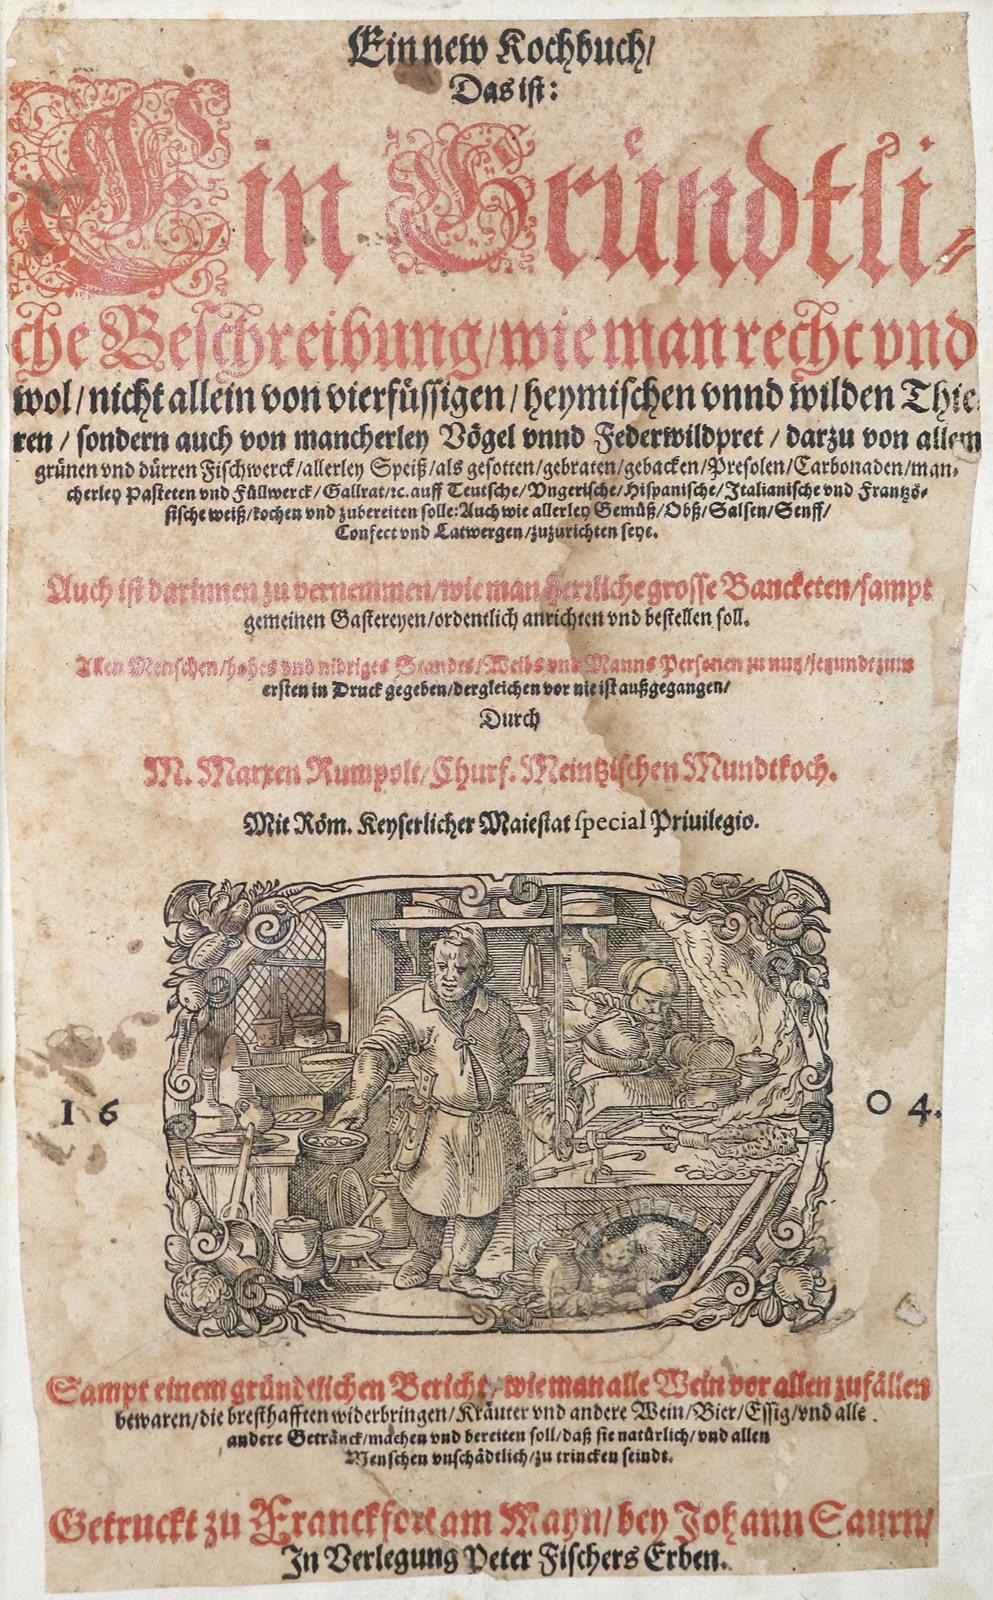 Ein new Kochbuch/
Das ist:
Ein Gründtli-
che Beschreibung/wie man recht vnd
wol/nicht allein von vierfüssigen/heymischen vnnd wilden Thie-
ren/sondern auch von mancherley Vögel vnnd Federwildpret/darzu von allem
grünen vnd dürren Fischwerck/allerley Speiß/als gesotten/gebraten/gebacken/Presolen/Carbonaden/man-
cherley Pasteten vnd Füllwerck/Gallrat/ꝛc. auff Teutsche/Vngerische/Hispanische/Italianische vnd Frantzö-
sische weiß/kochen vnd zubereiten solle: Auch wie allerley Gemüß/Obß/Salsen/Senff/
Confect vnd Latwergen/zuzurichten seye.
Auch ist darinnen zu vernemmen/wie man herrliche grosse Bancketen/sampt
gemeinen Gastereyen/ordentlich anrichten vnd bestellen soll.
Allen Menschen/hohes vnd nidriges Standes/Weibs vnd Manns Personen zu nutz/jetzundt zum
ersten in Druck gegeben/dergleichen vor nie ist außgegangen/
Durch
M. Marxen Rumpolt/Churf. Meintzischen Mundtkoch.
Mit Röm. Keyserlicher Maiestat special Priuilegio.
16 04.
Sampt einem gründtlichen Bericht/wie man alle Wein vor allen zufällen
bewaren/die bresthafften widerbringen/Kräuter vnd andere Wein/Bier/Essig/vnd alle
andere Getränck/machen vnd bereiten soll/daß sie natürlich/vnd allen
Menschen vnschädtlich/zu trincken seindt.
Getruckt zu Franckfort am Mayn/bey Johann Saurn/
In Verlegung Peter Fischers Erben.